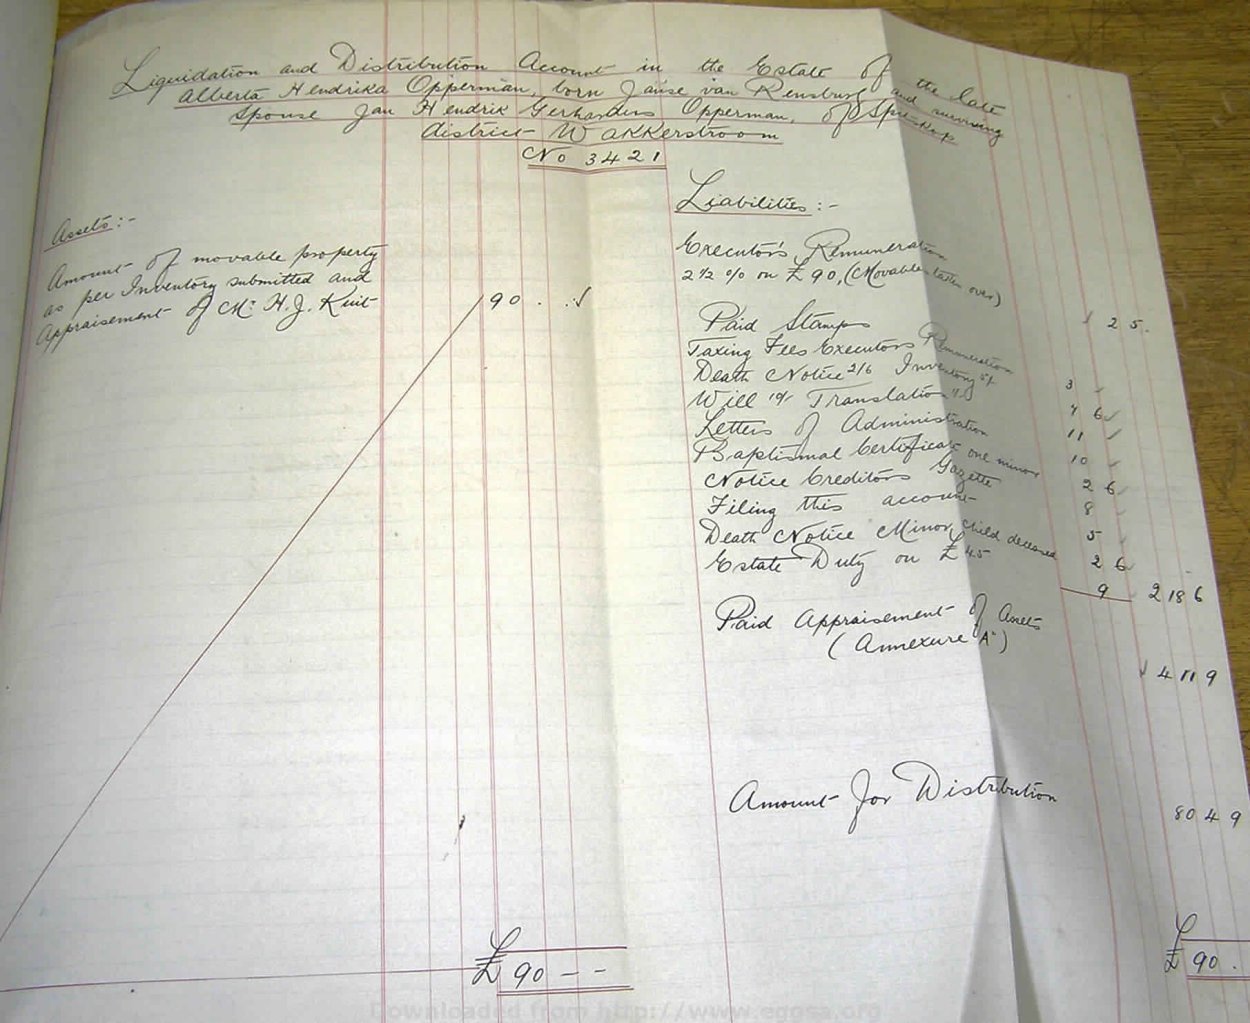 Liquidation and Distribution Account in the Estate of the late
Alberta Hendrika Opperman, born Janse van Rensburg and surviving
spouse Jan Hendrik Gerhardus Opperman, of Spitskop
district Wakkerstroom
No 3421
Assets:-
Amount of movable property
as per Inventory submitted and
Appraisement of Mr H.J. Kuit
90 . .
Liabilities:-
Executor's Remuneration
2 1/2 % on £90, (Movables taken over)
2 5 .
Paid Stamps
Taxing Fees Executors Remuneration 3
Death Notice 2/6 Inventory 5/- 7 6
Will 10/- Translation 1/- 11
Letters of Administration 10
Baptismal Certificate one minor 2 6
Notice Creditors Gazette 8
Filing this account 5
Death Notice Minor child deceased 2 6
Estate Duty on £45 9 2 18 6
Paid Appraisement of Assets
(Annexure "A")
4 11 9
Amount for Distribution
80 4 9
£ 90 - -
£ 90 .
Downloaded from http://www.eggsa.org